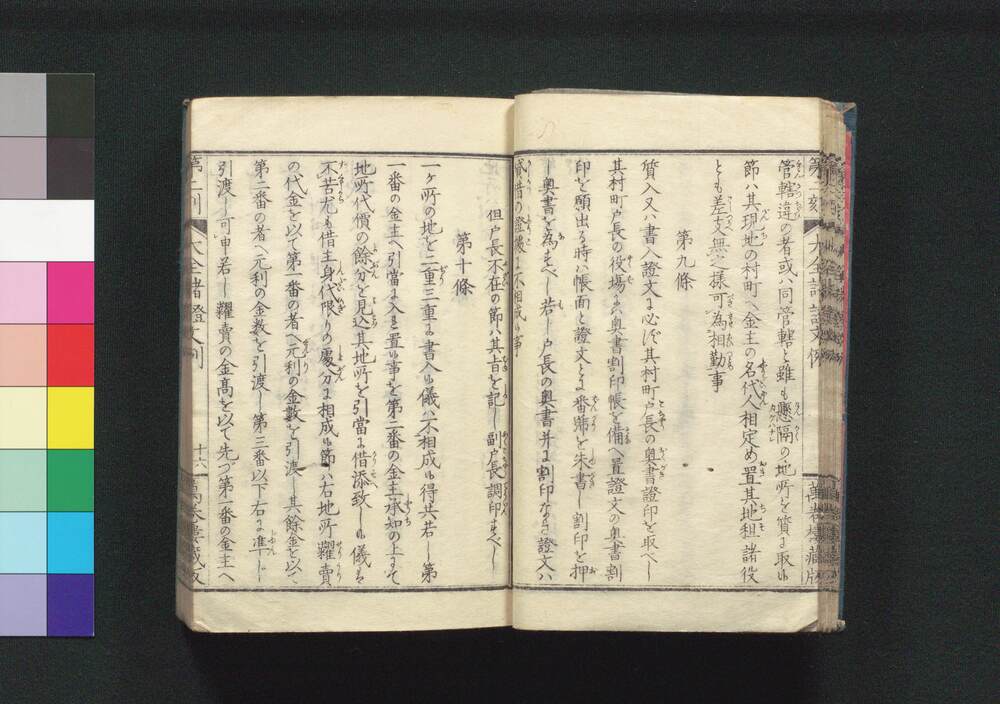 管轄違の者或ハ同管轄と雖も懸隔の地所を質に取候
節ハ其現地の村町へ金主の名代人相定め置其地租諸役
とも差支無之様可為相勤事
第九條
質入又ハ書入證文に必ず其村町戸長の奥書證印を取べし
其村町戸長の役場にハ奥書割印帳を備へ置證文の奥書割
印を願出る時ハ帳面と證文とに番號を朱書し割印を押
し奥書を為すべし若し戸長の奥書并に割印なき證文ハ
貸借の證據に不相成候事
但戸長不在の節ハ其旨を記し副戸長調印すべし
第十條
一ヶ所の地を二重三重に書入候儀ハ不相成候得共若し第
一番の金主へ引當に入れ置候事を第二番の金主承知の上にて
地所代價の餘分を見込其地所を引當に借添致し候儀は
不苦尤も借主身代限りの處分に相成候節ハ右地所糶賣
の代金を以て第一番の者へ元利の金數を引渡し其餘金を以て
第二番の者へ元利の金數を引渡し第三番以下右に準じ
引渡し可申若し糶賣の金高を以て先づ第一番の金主へ
大全諸證文例
十六